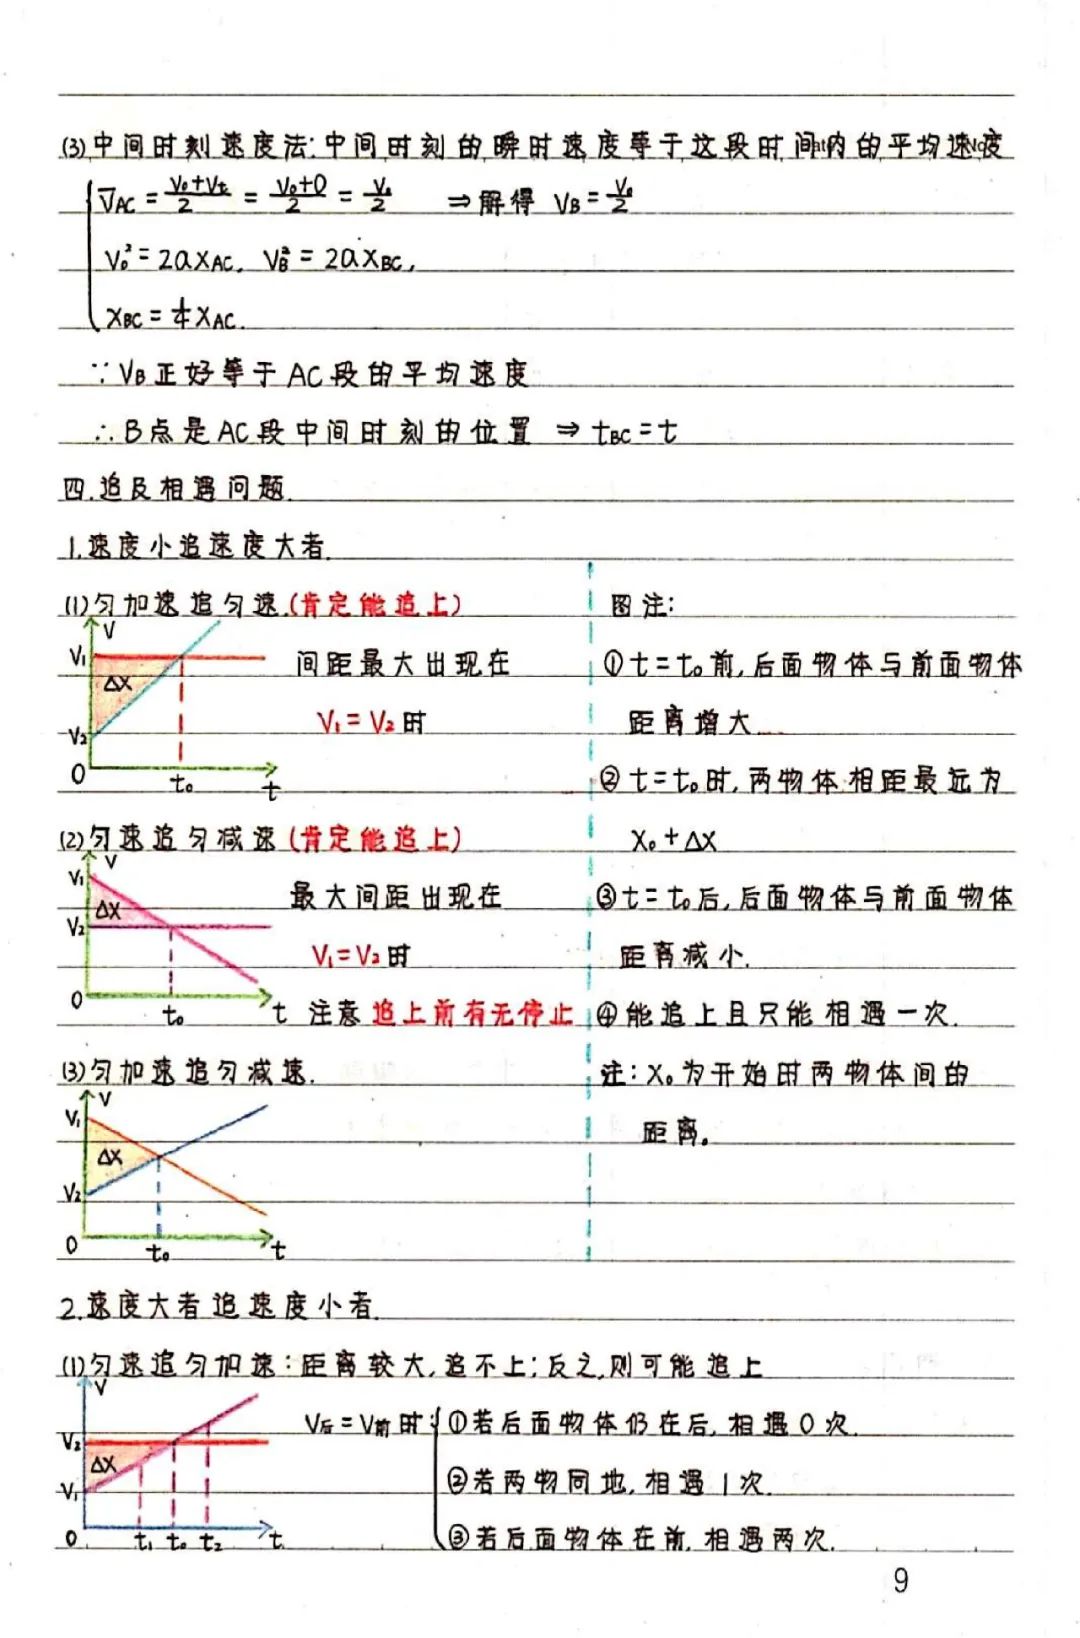 (3)中间时刻速度法:中间时刻的瞬时速度等于这段时间内的平均速度
V̅AC = (V₀+Vt)/2 = (V₀+0)/2 = V₀/2 ⇒解得 VB = V₀/2
V₀² = 2aXAC, VB² = 2aXBC,
XBC = 1/4 XAC.
∵VB正好等于AC段的平均速度
∴B点是AC段中间时刻的位置 ⇒ tBC = t
四.追及相遇问题.
1.速度小追速度大者.
(1)匀加速追匀速.(肯定能追上)
V
V₁
ΔX
V₂
0
t₀
t
间距最大出现在
V₁ = V₂时
(2)匀速追匀减速(肯定能追上)
V
V₁
ΔX
V₂
0
t₀
t
最大间距出现在
V₁ = V₂时
注意追上前有无停止
(3)匀加速追匀减速.
V
V₁
ΔX
V₂
0
t₀
t
图注:
①t = t₀前,后面物体与前面物体
距离增大
②t = t₀时,两物体相距最远为
X₀ + ΔX
③t = t₀后,后面物体与前面物体
距离减小.
④能追上且只能相遇一次.
注: X₀为开始时两物体间的
距离。
2.速度大者追速度小者.
(1)匀速追匀加速:距离较大,追不上;反之,则可能追上
V
V₂
ΔX
V₁
0
t₁
t₀
t₂
t
V后 = V前时:
①若后面物体仍在后,相遇0次.
②若两物同地,相遇1次.
③若后面物体在前,相遇两次.
9